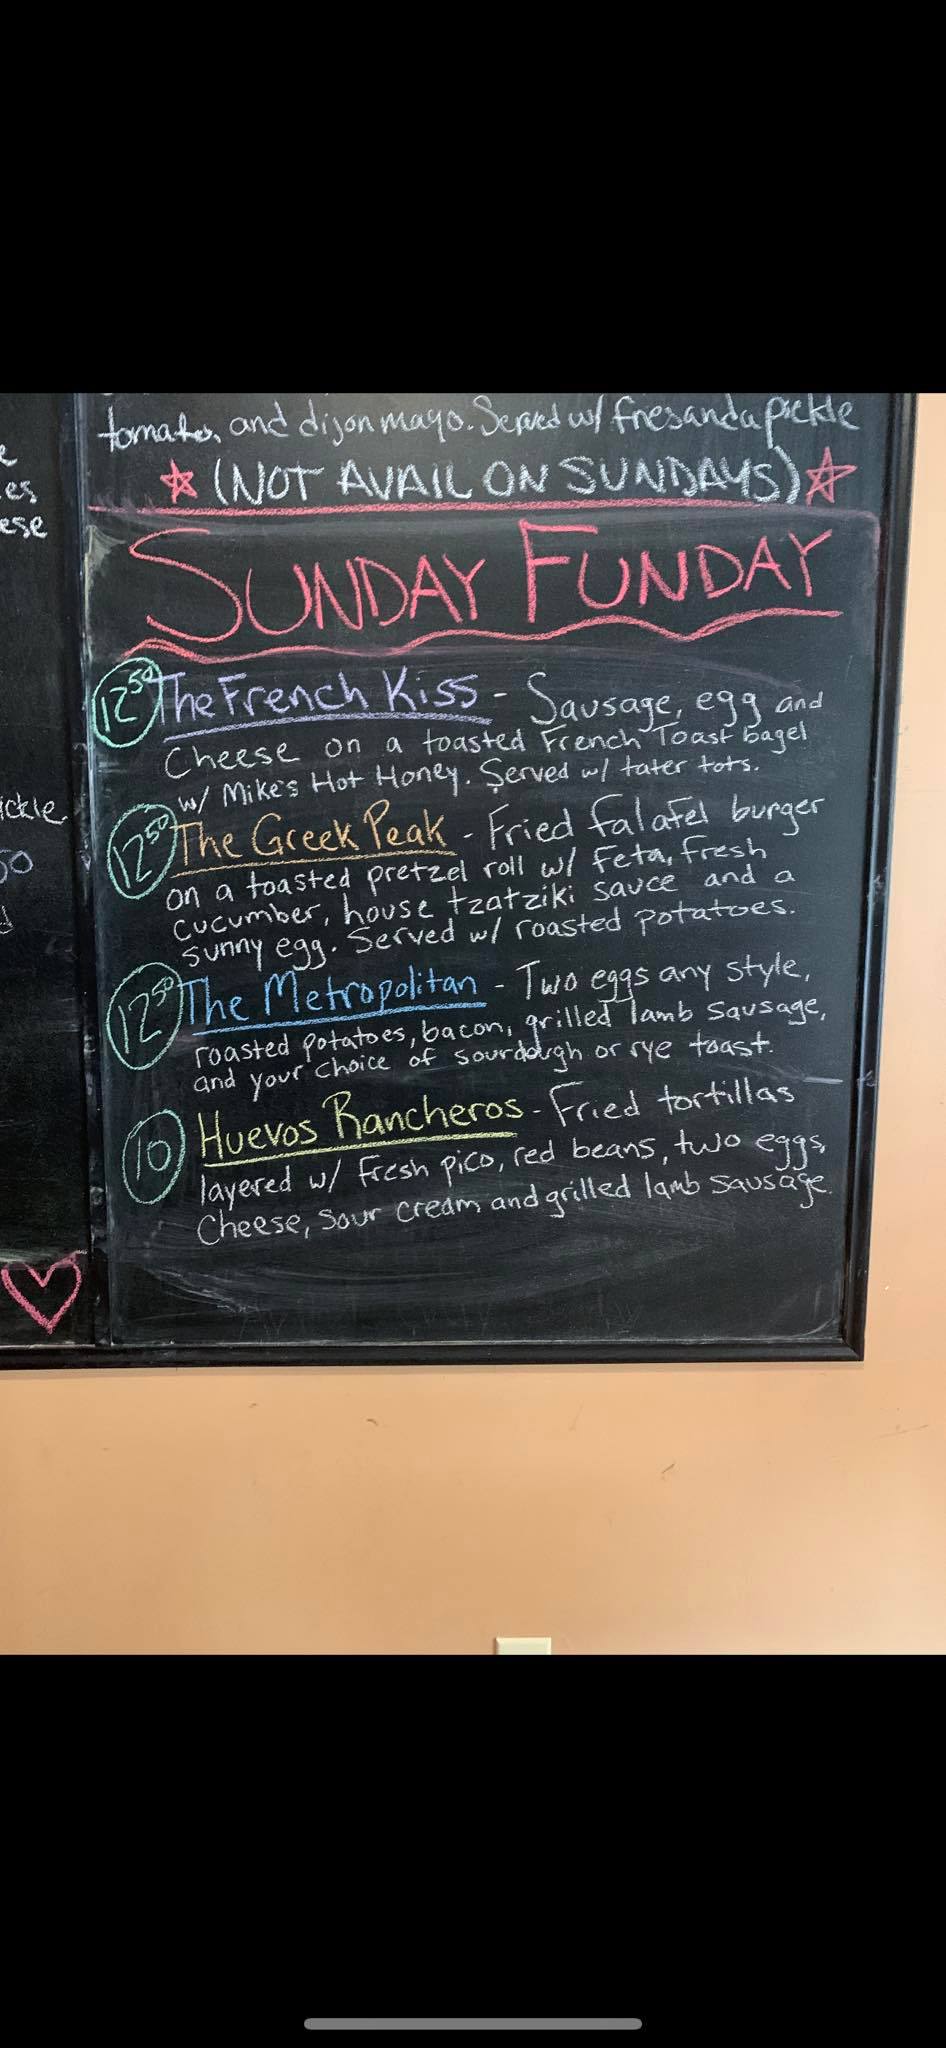 tomato, and dijon mayo. Served w/ fries and a pickle
(NOT AVAIL ON SUNDAYS)
SUNDAY FUNDAY
12 50 The French Kiss - Sausage, egg and
Cheese on a toasted French Toast bagel
w/ Mike's Hot Honey. Served w/ tater tots.
12 50 The Greek Peak - Fried falafel burger
on a toasted pretzel roll w/ Feta, fresh
cucumber, house tzatziki sauce and a
sunny egg. Served w/ roasted potatoes.
12 50 The Metropolitan - Two eggs any style,
roasted potatoes, bacon, grilled lamb sausage,
and your choice of sourdough or rye toast.
10 Huevos Rancheros - Fried tortillas
layered w/ Fresh pico, red beans, two eggs,
Cheese, sour cream and grilled lamb sausage.